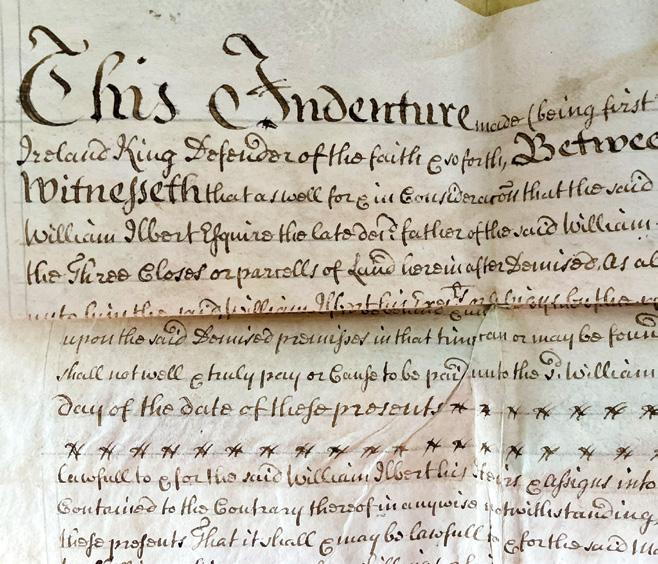 This Indenture made (being first
Ireland King Defender of the faith & so forth, Betwee
Witnesseth that aswell for & in Consideracon that the said
William Ilbert Esquire the late decd father of the said William
the Three Closes or parcells of Land herein after Demised, As al
unto him the said William Ilbert his
upon the said Demised premisses in that time can or may be foun
shall not well & truly pay or Cause to be paid unto the sd William
day of the date of these presents
Lawfull to & for the said William Ilbert his Heirs & assigns into
Contained to the Contrary thereof in any wise notwithstanding
these presents That it shall & may be lawfull & for the said